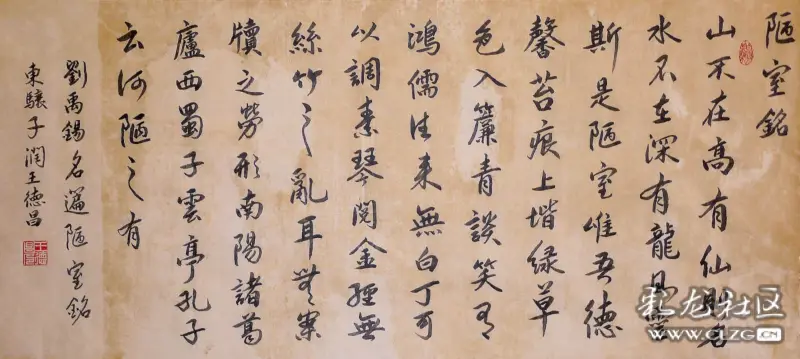 陋室銘
山不在高有仙則名
水不在深有龍則靈
斯是陋室唯吾德
馨苔痕上堦緑草
色入簾青談笑有
鴻儒往来無白丁可
以調素琴閲金經無
絲竹之亂耳無案
牘之勞形南陽諸葛
廬西蜀子雲亭孔子
云何陋之有
劉禹錫名篇陋室銘
東驤子潤王德昌
彩龙社区
WWW.CLZG.CN